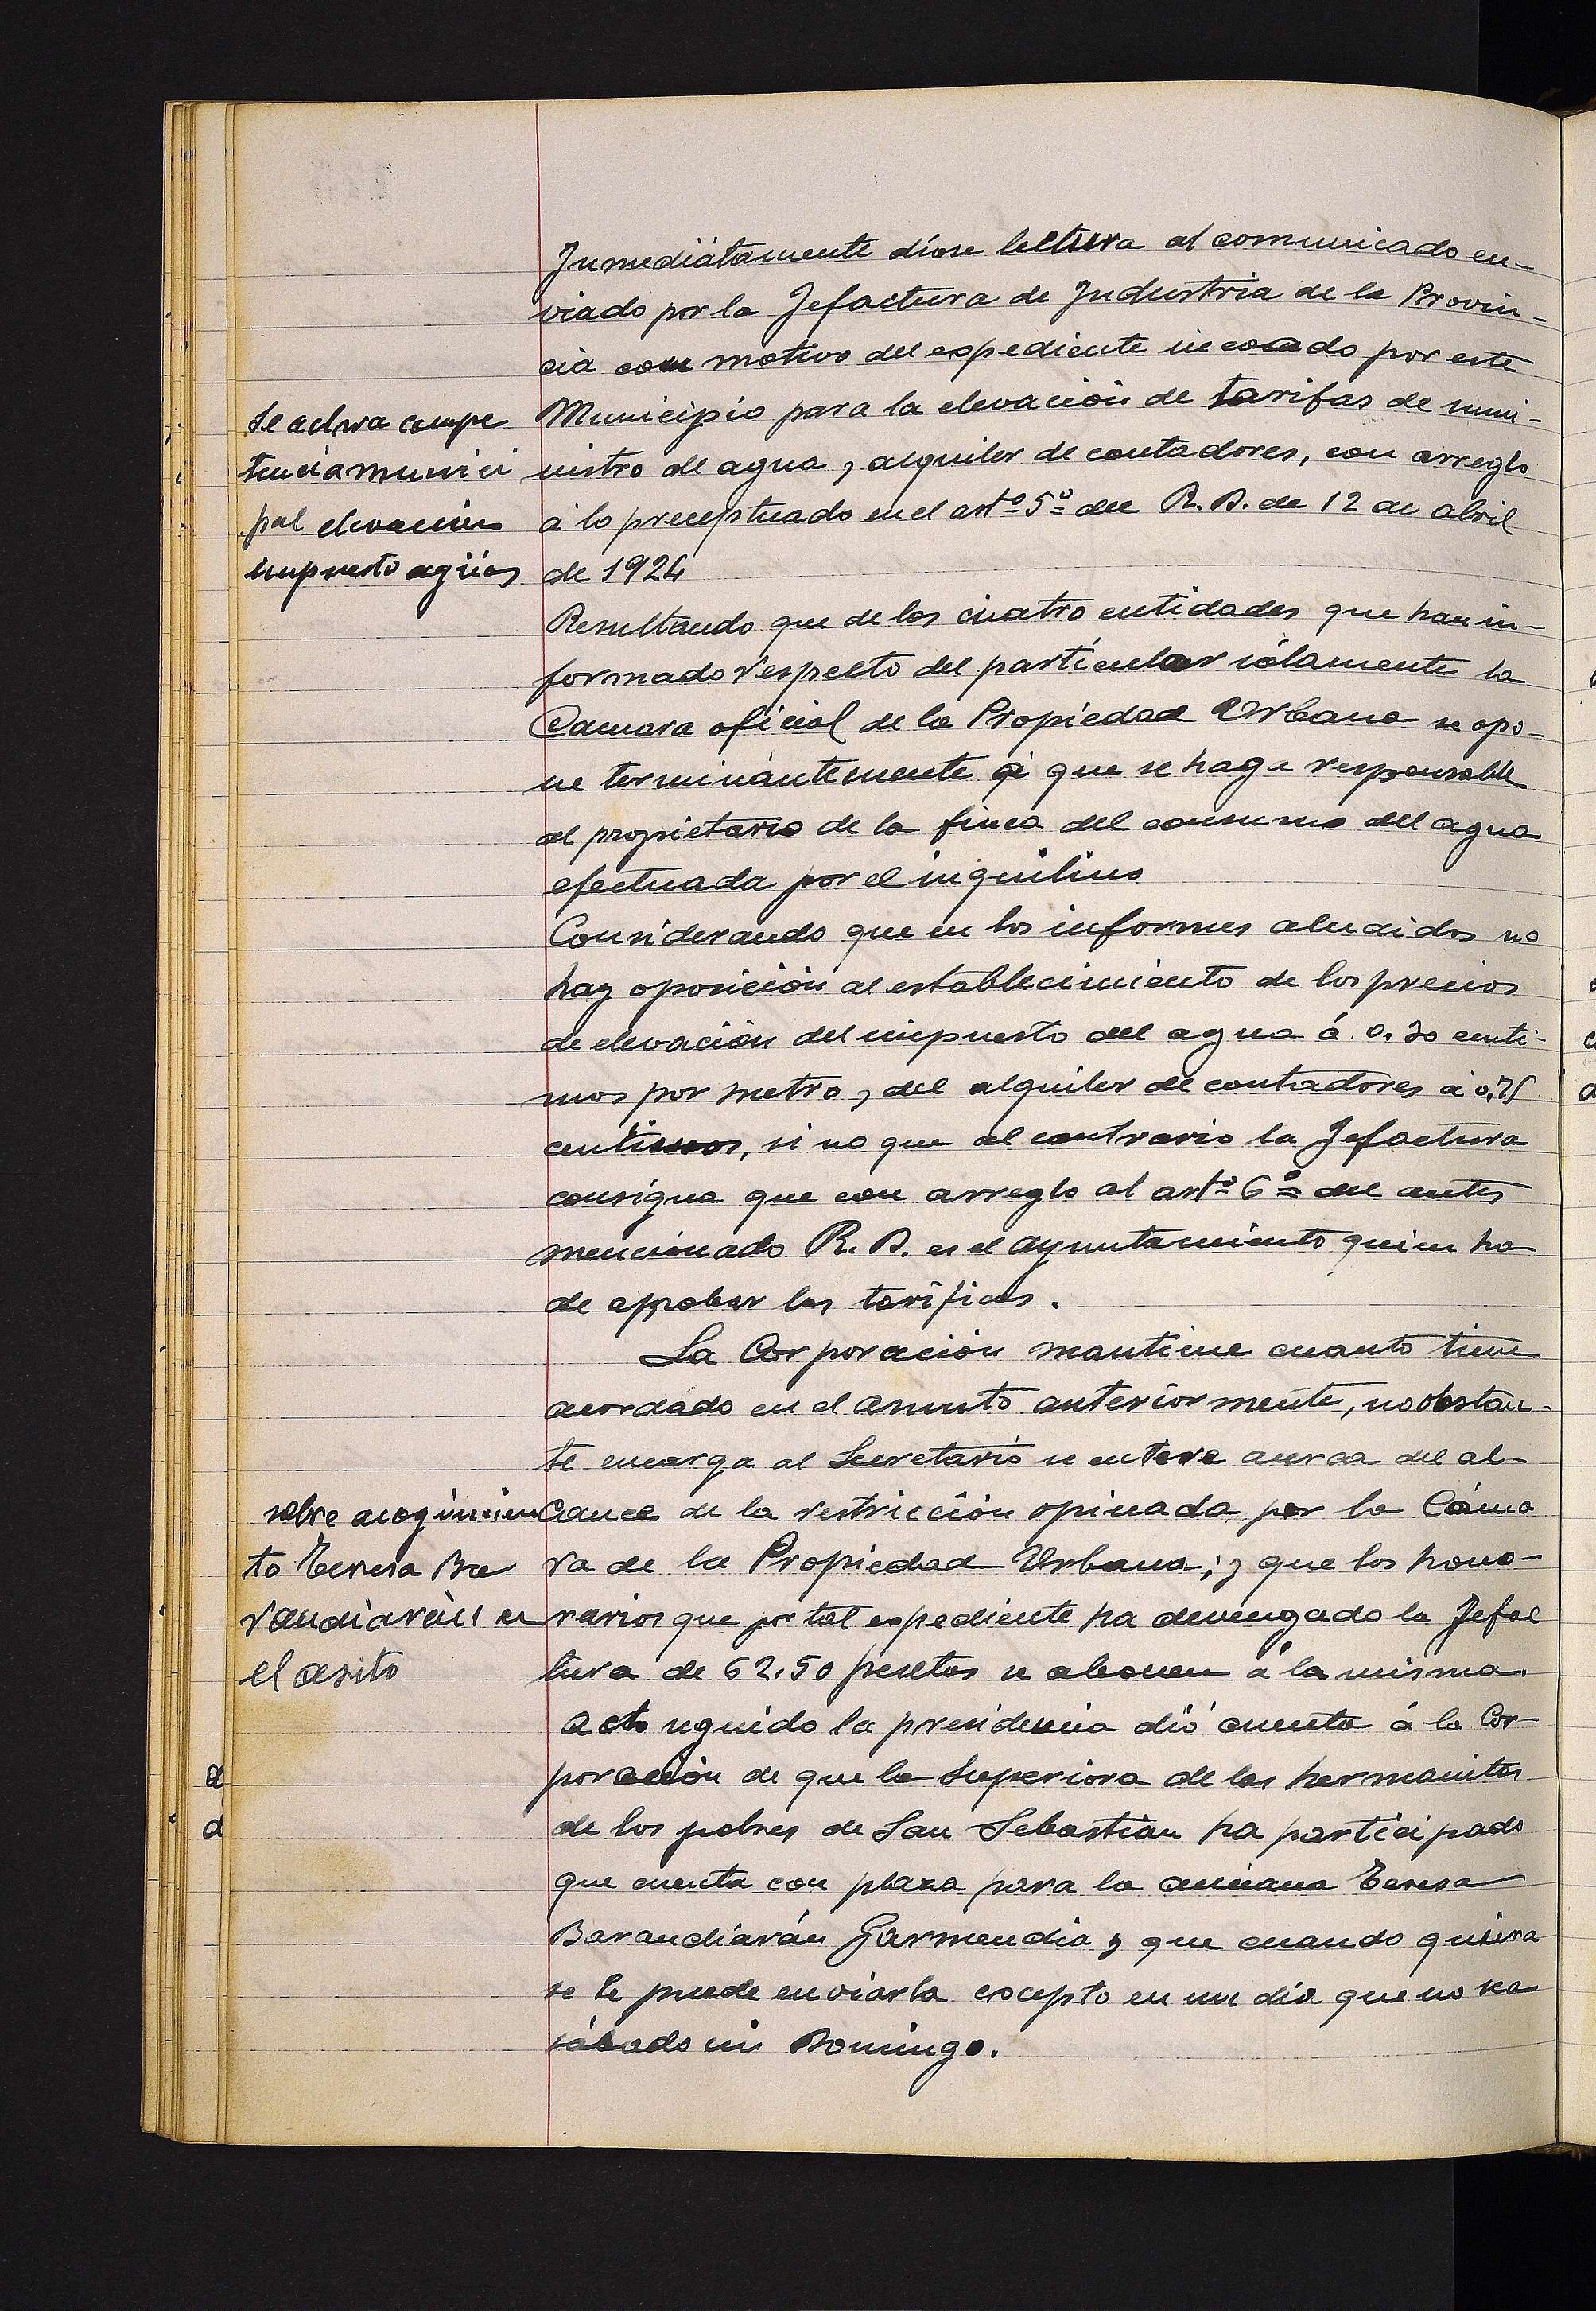 Inmediátamente dióse lectura al comunicado en-
viado por la Jefactura de Industria de la Provin-
cia con motivo del expediente incoado por este
Se aclara compe
Municipio para la elevación de tarifas de sumi-
tencia munici
nistro de agua y alquiler de contadores, con arreglo
pal elevación
á lo preceptuado en el artº 5º del R.D. de 12 de abril
impuesto aguas
de 1924
Resultando que de las cuatro entidades que han in-
formado respecto del particular sólamente la
Camara oficial de la Propiedad Urbana se opo-
ne terminantemente á que se haga responsable
al propietario de la finca del consumo del agua
efectuada por el inquilino
Considerando que en los informes aludidos no
hay oposición al establecimiento de los precios
de elevación del impuesto del agua á 0.30 centi-
mos por metro y del alquiler de contadores á 0,75
centimos, si no que al contrario la Jefactura
consigna que con arreglo al artº 6º del antes
mencionado R.D. es el ayuntamiento quien ha
de aprobar las tarifas.
La Corporación mantiene cuanto tiene
acordado en el asunto anteriormente, no obstan-
te encarga al Secretario se entere acerca del al-
sobre acogimien
cance de la restricción opinada por la Cáma
to Teresa Ba
ra de la Propiedad Urbana; y que los hono-
randiarán en
rarios que por tal expediente ha devengado la Jefac
el asilo
tura de 62.50 pesetas se abonen á la misma.
Acto seguido la presidencia dió cuenta á la Cor-
poración de que la Superiora de las hermanitas
de los pobres de San Sebastián ha participado
que cuenta con plaza para la anciana Teresa
Barandiarán Garmendia y que cuando quisiera
se le puede enviarla excepto en un día que no sea
sábado ni Domingo.